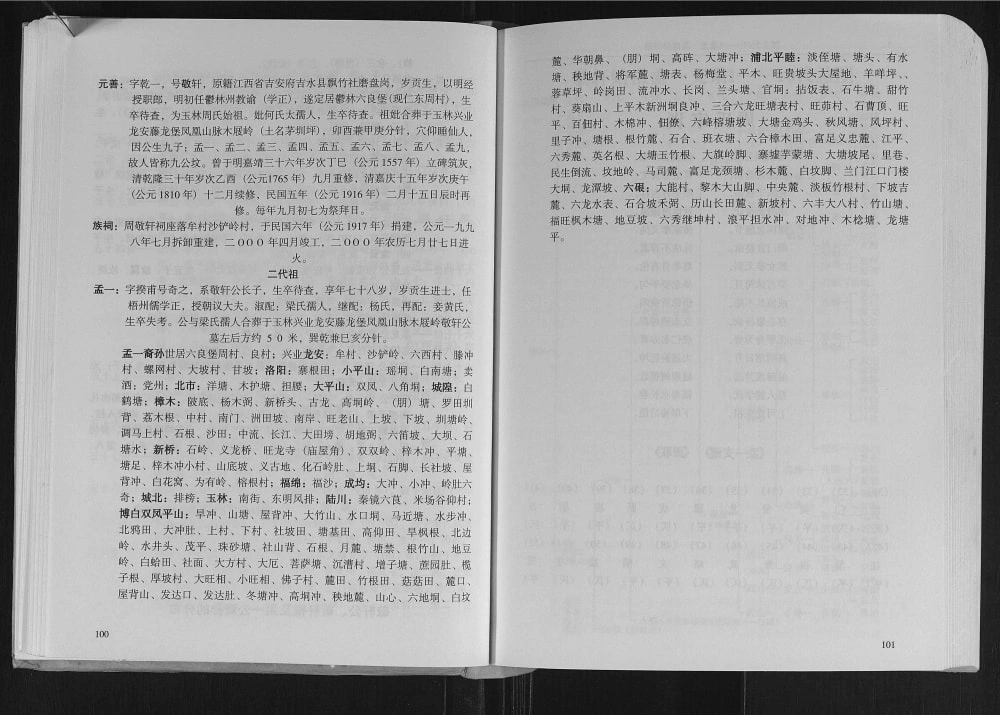 元善：字乾一，号敬轩，原籍江西省吉安府吉水县飘竹社磨盘岗，岁贡生，以明经
授职郎，明初任鬱林州教谕（学正），遂定居鬱林六良堡（现仁东周村），生
卒待查，为玉林周氏始祖。妣何氏太孺人，生卒待查。祖妣合葬于玉林兴业
龙安藤龙堡凤凰山脉木屐岭（土名茅圳坪），卯酉兼甲庚分针，穴仰睡仙人，
因公生九子；孟一、孟二、孟三、孟四、孟五、孟六、孟七、孟八、孟九，
故人皆称九公坟。曾于明嘉靖三十六年岁次丁巳（公元 1557 年）立碑筑灰，
清乾隆三十年岁次乙酉（公元1765 年）九月重修，清嘉庆十五年岁次庚午
（公元 1810 年）十二月续修，民国五年（公元 1916 年）二月十五日辰时再
修。每年九月初七为祭拜日。
族祠：周敬轩祠座落牟村沙铲岭村，于民国六年（公元 1917 年）捐建，公元一九九
八年七月拆卸重建，二ＯＯＯ年四月竣工，二ＯＯＯ年农历七月廿七日进
火。
二代祖
孟一：字揆甫号奇之，系敬轩公长子，生卒待查，享年七十八岁，岁贡生进士，任
梧州儒学正，授朝议大夫。淑配：梁氏孺人，继配：杨氏，再配：妾黄氏，
生卒失考。公与梁氏孺人合葬于玉林兴业龙安藤龙堡凤凰山脉木屐岭敬轩公
墓左后方约 ５０ 米，巽乾兼巳亥分针。
孟一裔孙世居六良堡周村、良村；兴业龙安：牟村、沙铲岭、六西村、滕冲
村、螺网村、大坡村、甘坡；洛阳：寨根田；小平山：瑶垌、白南塘；卖
酒：党州；北市：洋塘、木护塘、担腰；大平山：双凤、八角垌；城隍：白
鹤塘；樟木：陂底、杨木弼、新桥头、古龙、高垌岭、（朋）塘、罗田圳
背、荔木根、中村、南门、洲田坡、南岸、旺老山、上坡、下坡、圳塘岭、
调马上村、石根、沙田：中流、长江、大田塝、胡地弼、六笛坡、大坝、石
塘水；新桥：石岭、义龙桥、旺龙寺（庙屋角）、双双岭、梓木冲、平塘、
塘足、梓木冲小村、山底坡、义古地、化石岭肚、上垌、石脚、长社坡、屋
背冲、白花窝、为有岭、榕根村；福绵：福沙；成均：大冲、小冲、岭肚六
奇；城北：排榜；玉林：南街、东明风排；陆川：秦镜六苴、米场谷仰村；
博白双凤平山：早冲、山塘、屋背冲、大竹山、水口垌、马近塘、水步冲、
北鸦田、大冲肚、上村、下村、社坡田、塘基田、高仰田、旱枫根、北边
岭、水井头、茂平、珠砂塘、社山背、石根、月麓、塘禁、根竹山、地豆
岭、白蛤田、社面、大方村、大厄、菩萨塘、沉漕村、增子塘、蔗园肚、榄
子根、厚坡村、大旺相、小旺相、佛子村、麓田、竹根田、菇菇田、麓口、
屋背山、发达口、发达肚、冬塘冲、高垌冲、秧地麓、山心、六地垌、白坟
100
麓、华朝鼻、（朋）垌、高砗、大塘冲；浦北平睦：淡侄塘、塘头、有水
塘、秧地背、将军麓、塘表、杨梅堂、平木、旺贵坡头大屋地、羊咩坪、、
蓉草坪、岭岗田、流冲水、长岗、兰头塘、官垌：拈饭表、石牛塘、甜竹
村、葵扇山、上平木新洲垌良冲、三合六龙旺塘表村、旺蒋村、石曹顶、旺
平、百佃村、木棉冲、佃僚、六峰榕塘坡、大塘金鸡头、秋风塘、凤坪村、
里子冲、塘根、根竹麓、石合、班衣塘、六合樟木田、富足义忠麓、江平、
六秀麓、英名根、大塘玉竹根、大旗岭脚、寨墟芋蒙塘、大塘坡尾、里巷、
民生倒流、坟地岭、马司麓、富足龙颈塘、杉木麓、白坟脚、兰门江口门楼
大垌、龙潭坡、六硍；大能村、黎木大山脚、中央麓、淡板竹根村、下坡吉
麓、六龙水表、石合坡禾弼、历山长田麓、新坡村、六丰大八村、竹山塘、
福旺枫木塘、地豆坡、六秀继坤村、浪平担水冲、对地冲、木棯塘、龙塘
平。
101